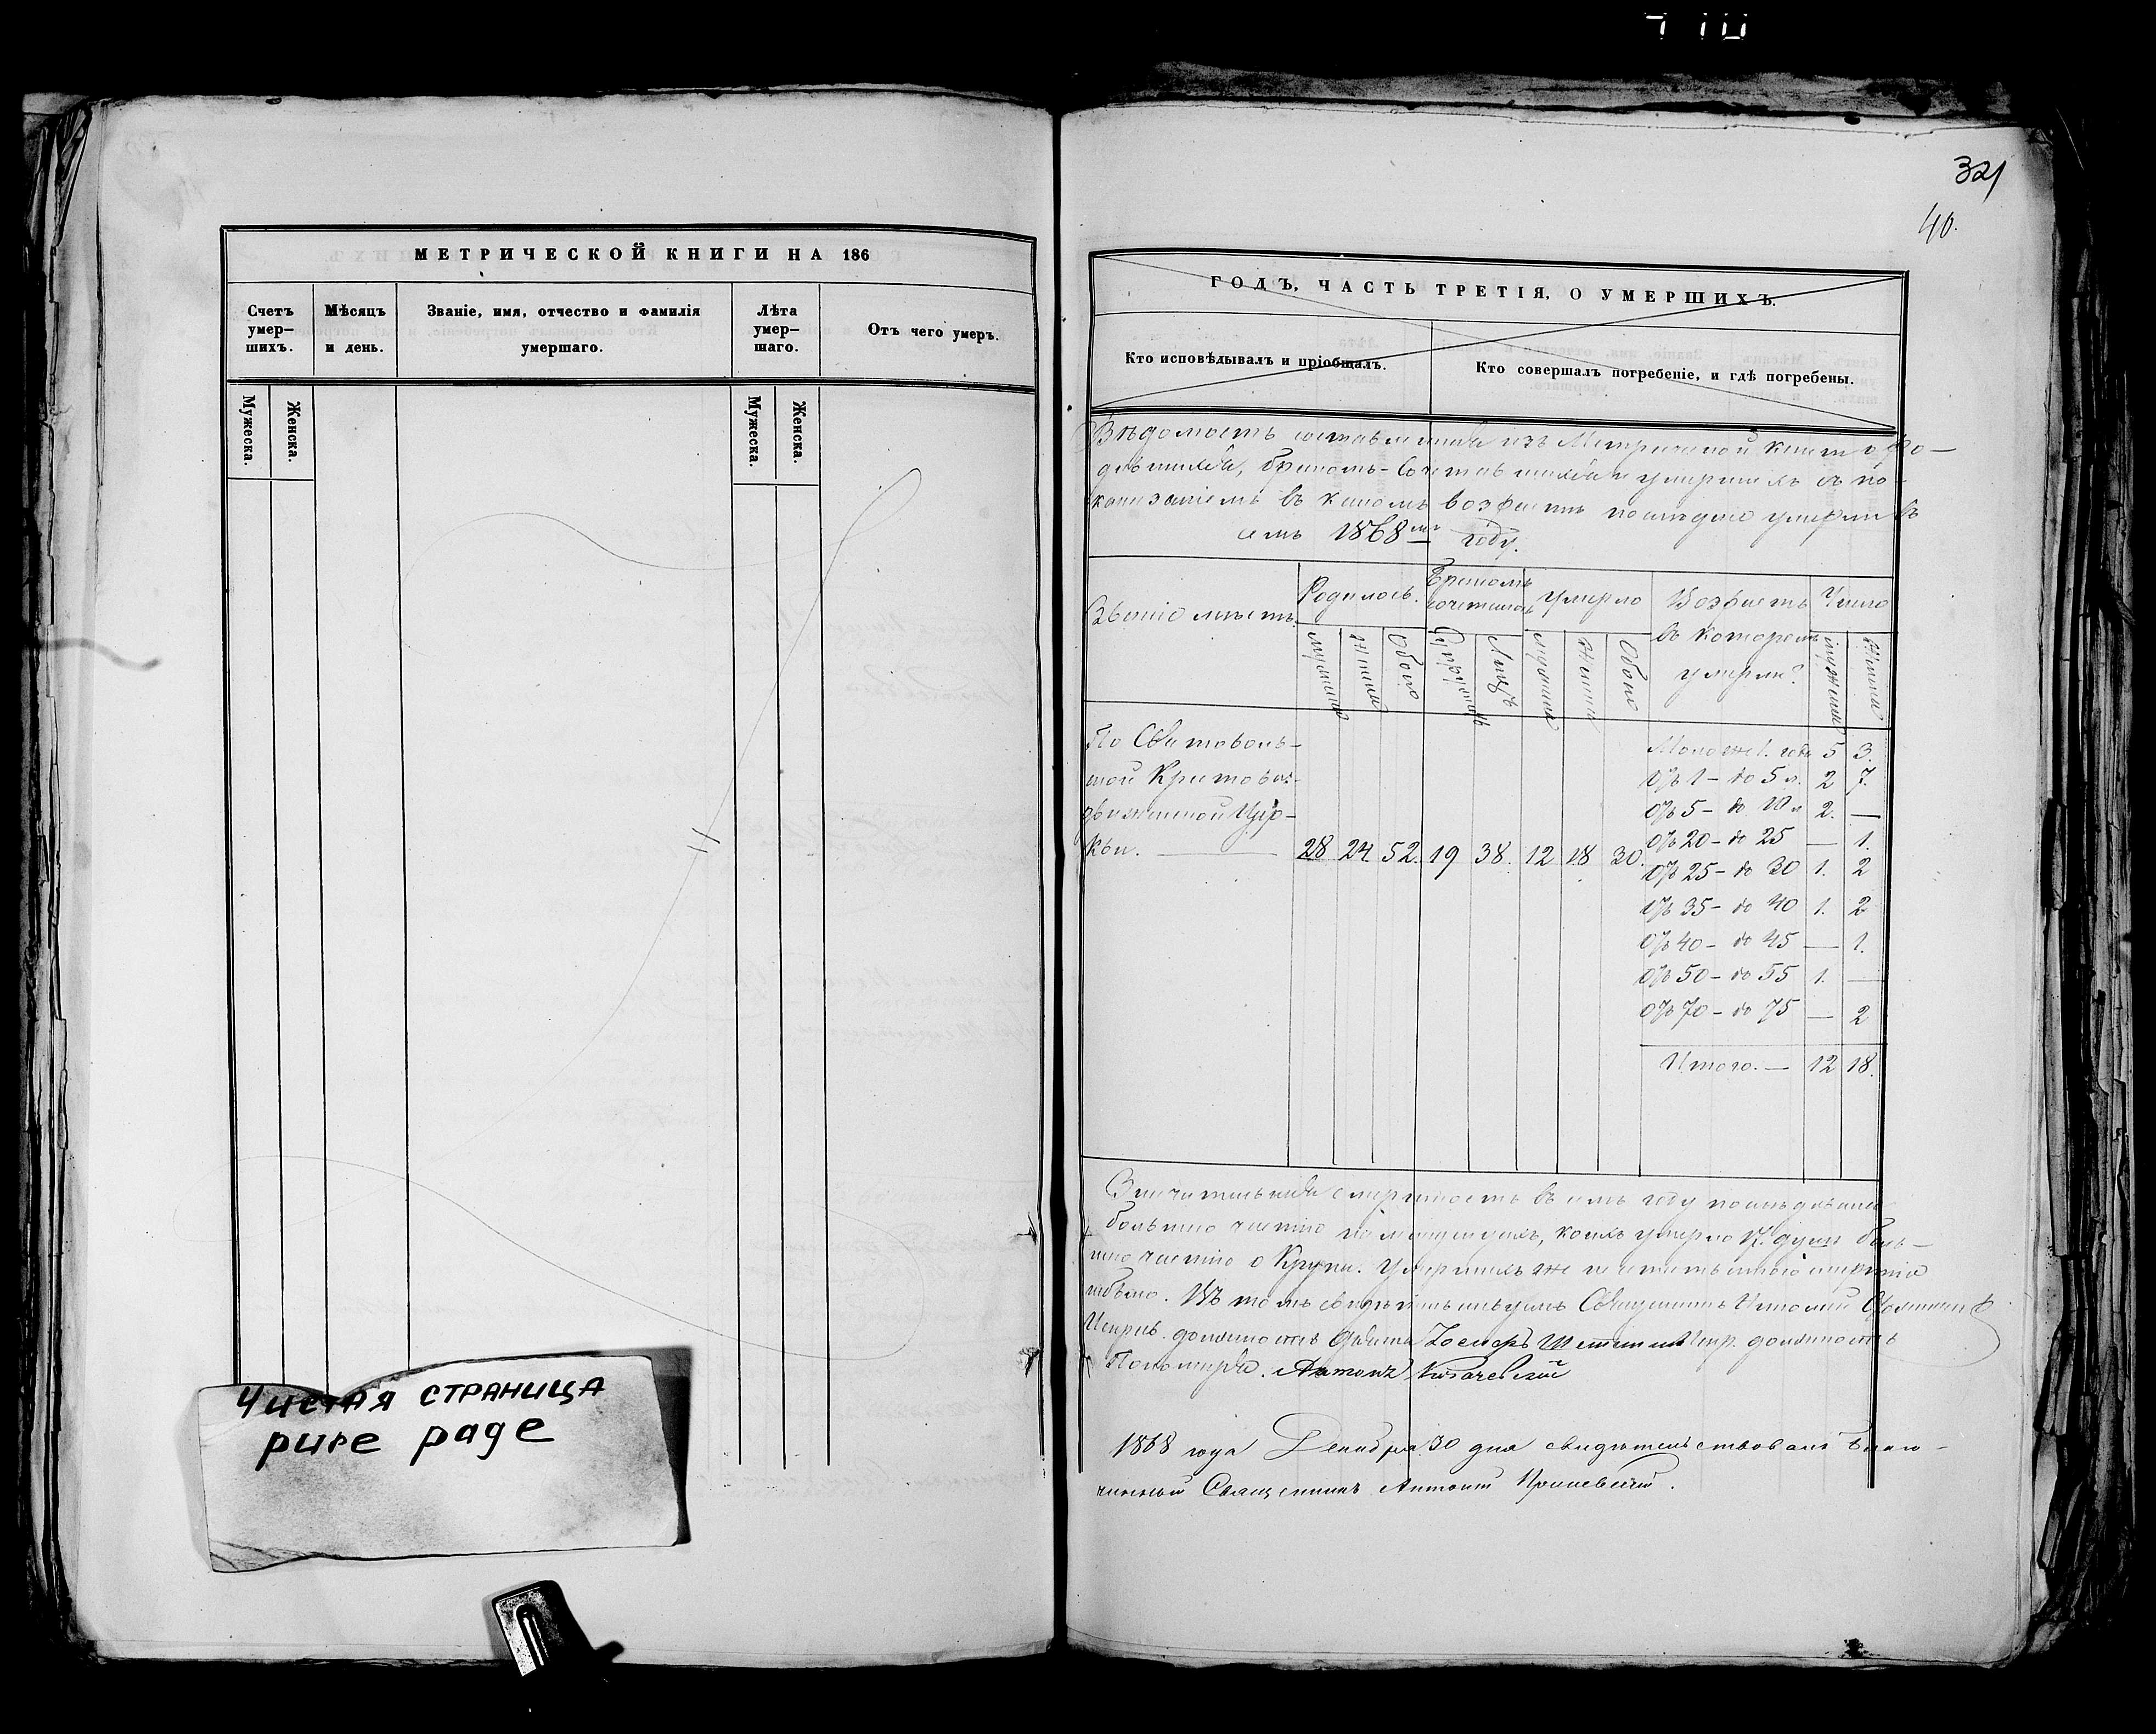 710
МЕТРИЧЕСКОЙ КНИГИ НА 186
Счетъ умер– шихъ.
Мѣсяцъ и день.
Званіе, имя, отчество и фамилія умершаго.
Лѣта умер– шаго.
Отъ чего умеръ.
Мужеска.
Женска.
Мужеска.
Женска.
Чистая страница
pure page
321
40.
ГОДЪ, ЧАСТЬ ТРЕТІЯ, О УМЕРШИХЪ.
Кто исповѣдывалъ и пріобщалъ.
Кто совершалъ погребеніе, и гдѣ погребены.
Вѣдомость составленная изъ Метрической книги о ро–
дившихся, бракомъ-Сочетавшихся и умершихъ съ по-
казаніемъ въ какомъ возрастѣ послѣдніе умерли въ
семъ 1868мъ году.
Званіе мѣстъ.
Родилось.
Бракомъ сочеталось
умерло
Возрастъ въ которомъ умерли?
Число
Обоего
Лицъ
Обоего
По Святоволь–
ской Крестовоз-
движенской Цер–
кви. — 28 24 52. 19 38. 12 18 30.
Моложе 1. года 5 3.
Отъ 1 – до 5 л. 2 7.
Отъ 5 – до 10 л 2. —
Отъ 20 – до 25 — 1.
Отъ 25 – до 30 1. 2
Отъ 35 – до 40 1. 2
Отъ 40 – до 45 — 1.
Отъ 50 – до 55 1. —
Отъ 70 – до 75 — 2
Итого. — 12 18.
Значительная смертность въ семъ году
большою частію на младенцахъ, коихъ умерло 17. душъ боль–
шою частію о Крупа. Умершихъ же
небыло. Въ томъ Священникъ
должность Іосифъ должность
Пономаря. Антонъ
1868 года Декабря 30 дня свидѣтельствовалъ Благо–
чинный Священникъ Антоній